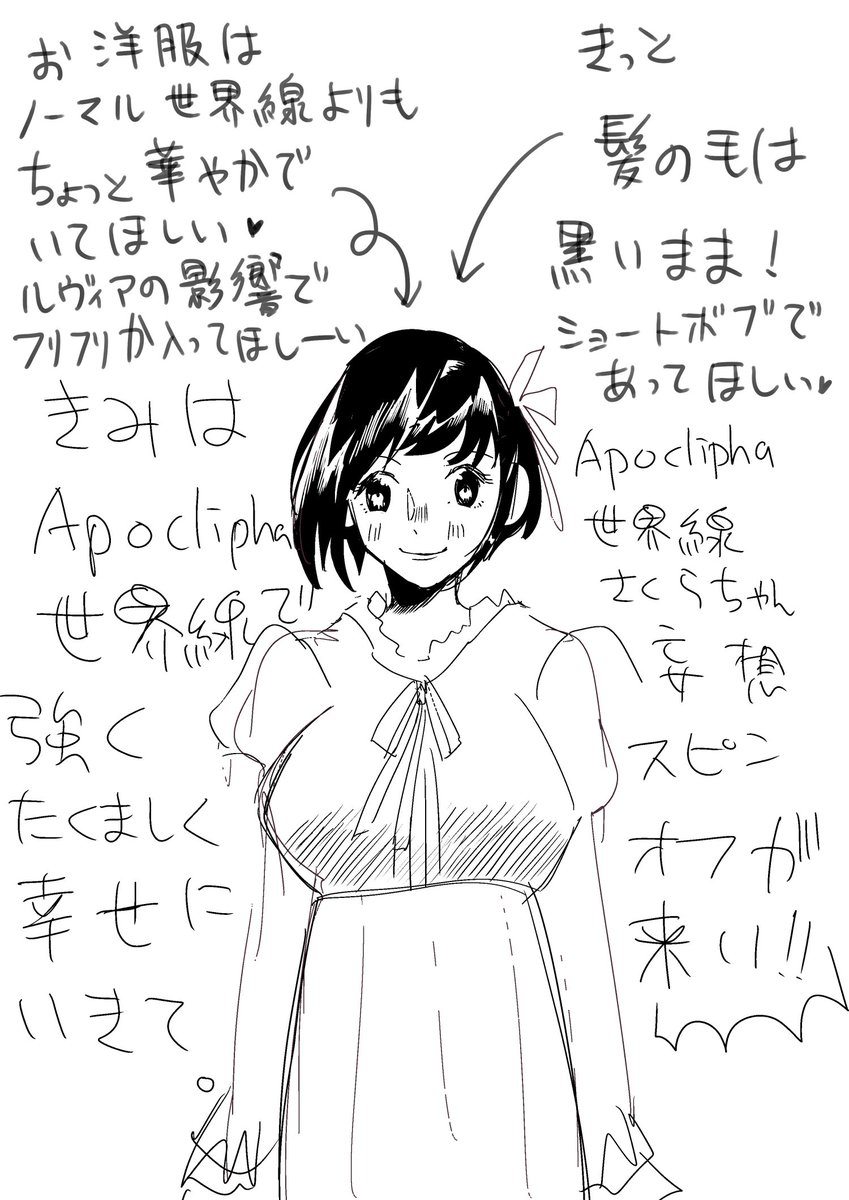 お洋服は
ノーマル世界線よりも
ちょっと華やかで
いてほしい♥
ルヴィアの影響で
フリフリが入ってほしーい
きっと
髪の毛は
黒いまま！
ショートボブで
あってほしい♥
きみは
Apoclipha
世界線で
強く
たくましく
幸せに
いきて。
Apoclipha
世界線
さくらちゃん
妄想
スピン
オフが
来い!!